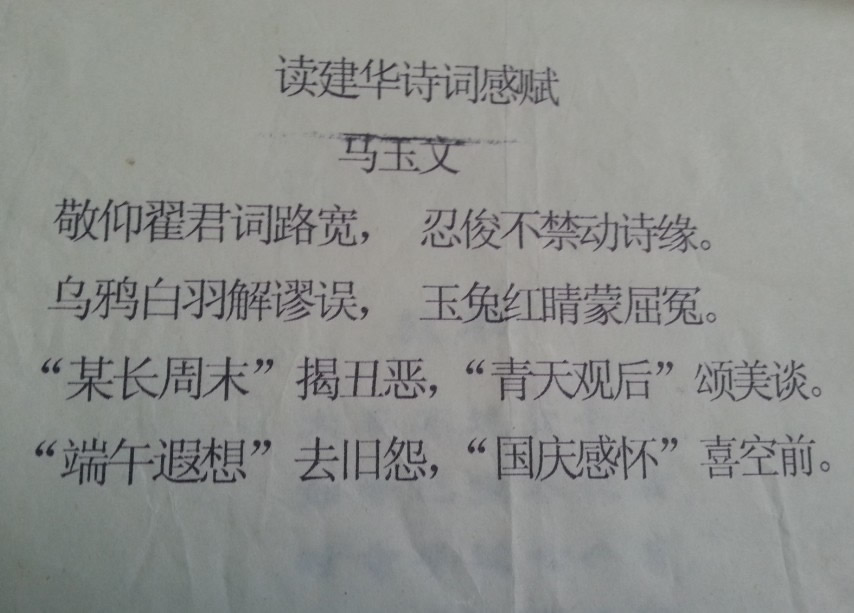 读建华诗词感赋
马玉文
敬仰翟君词路宽， 忍俊不禁动诗缘。
乌鸦白羽解谬误， 玉兔红睛蒙屈冤。
“某长周末”揭丑恶，“青天观后”颂美谈。
“端午遐想”去旧怨，“国庆感怀”喜空前。